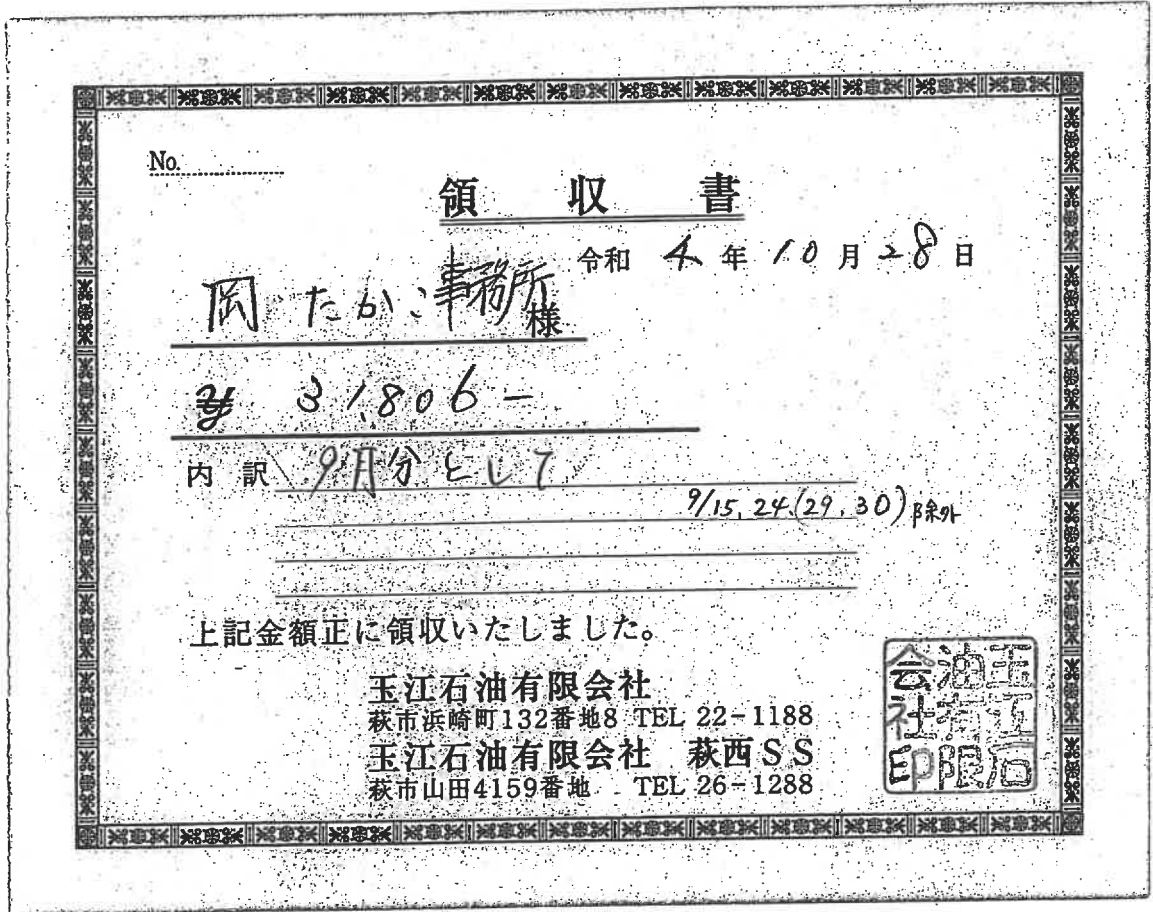 No.
領収書
令和 4年10月28日
岡たかし事務所様
¥ 31,806-
内訳 9月分として
9/15, 24, (29, 30) 除外
上記金額正に領収いたしました。
玉江石油有限会社
萩市浜崎町132番地8 TEL 22-1188
玉江石油有限会社 萩西SS
萩市山田4159番地 TEL 26-1288
玉江石油有限会社印